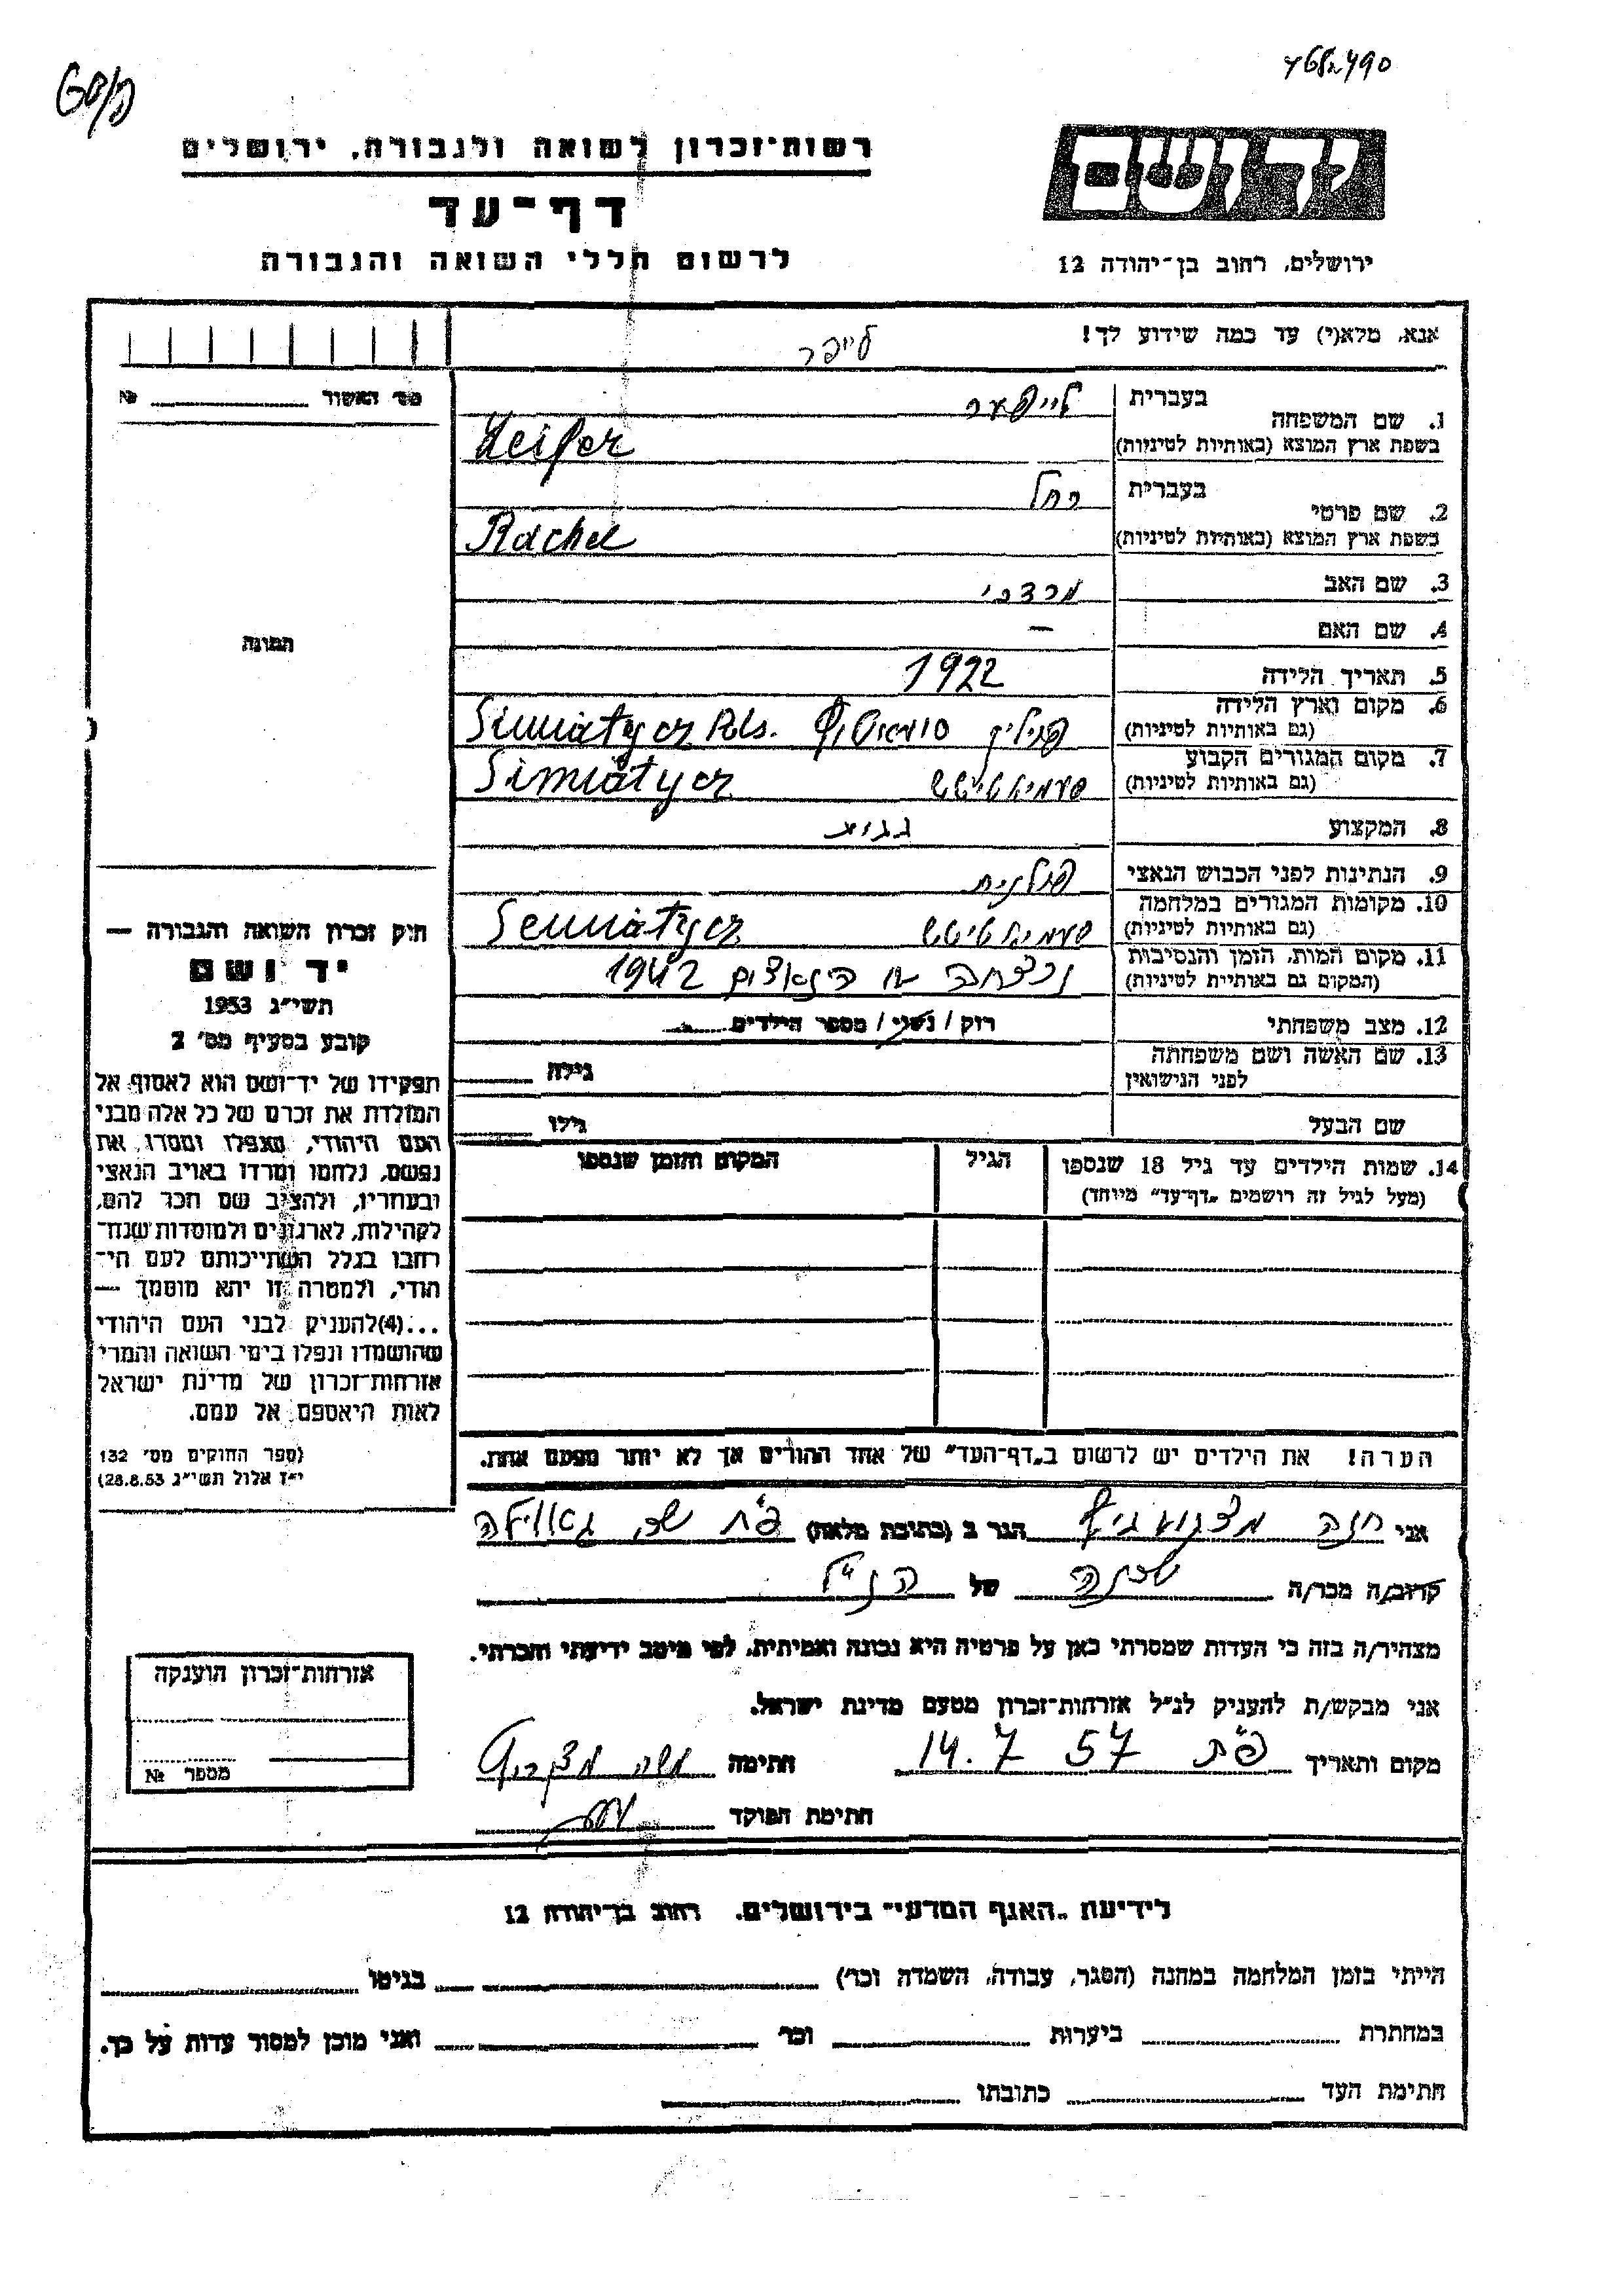 רשות־זכרון לשואה ולגבורה, ירושלים
דף־עד
לרשום חללי השואה והגבורה
ידושם
ירושלים, רחוב בן־יהודה 12
אנא, מלא(י) עד כמה שידוע לך!
לייפר
1. שם המשפחה
בעברית לייפער
בשפת ארץ המוצא (באותיות לטיניות) Leifer
2. שם פרטי
בעברית רחל
בשפת ארץ המוצא (באותיות לטיניות) Rachel
3. שם האב מרדכי
4. שם האם —
5. תאריך הלידה 1922
6. מקום וארץ הלידה
(גם באותיות לטיניות) פוילין Simiatycz Pols.
7. מקום המגורים הקבוע
(גם באותיות לטיניות) סעמיאטיטש Simiatycz
8. המקצוע
9. הנתינות לפני הכבוש הנאצי פולנית
10. מקומות המגורים במלחמה
(גם באותיות לטיניות) סעמיאטיטש Semiatycz
11. מקום המות, הזמן והנסיבות
(המקום גם באותיות לטיניות) נרצחה ע הנאצים 1942
12. מצב משפחתי רוק / נשוי / מספר הילדים
13. שם האשה ושם משפחתה
לפני הנישואין גילה
שם הבעל גילו
14. שמות הילדים עד גיל 18 שנספו הגיל המקום והזמן שנספו
(מעל לגיל זה רושמים „דף־עד” מיוחד)
הערה! את הילדים יש לרשום ב„דף־העד” של אחד ההורים אך לא יותר מפעם אחת.
מס׳ האשור №
תמונה
חוק זכרון השואה והגבורה —
יד ושם
תשי״ג 1953
קובע בסעיף מס׳ 2
תפקידו של יד־ושם הוא לאסוף אל
המולדת את זכרם של כל אלה מבני
העם היהודי, שנפלו ומסרו את
נפשם, נלחמו ומרדו באויב הנאצי
ובעוזריו, ולהציב שם וזכר להם,
לקהילות, לארגונים ולמוסדות שנח־
רבו בגלל השתייכותם לעם הי־
הודי, ולמטרה זו יהא מוסמך —
...(4)להעניק לבני העם היהודי
שהושמדו ונפלו בימי השואה והמרי
אזרחות־זכרון של מדינת ישראל
לאות היאספם אל עמם.
(ספר החוקים מס׳ 132
י״ז אלול תשי״ג 28.8.53)
אני חנה הגר ב (כתובת מלאה) פ״ת שכ׳
קרוב/ה מכר/ה שכנה של הנ״ל
מצהיר/ה בזה כי העדות שמסרתי כאן על פרטיה היא נכונה ואמיתית, לפי מיטב ידיעתי והכרתי.
אני מבקש/ת להעניק לנ״ל אזרחות־זכרון מטעם מדינת ישראל.
מקום ותאריך פ״ת 14.7 57 חתימה
חתימת הפוקד
אזרחות־זכרון הוענקה
מספר №
לידיעת „האגף המדעי” בירושלים, רחוב בן־יהודה 12
הייתי בזמן המלחמה במחנה (הסגר, עבודה, השמדה וכו׳) בגיטו
במחתרת ביערות וכו׳ ואני מוכן למסור עדות על כך.
חתימת העד כתובתו